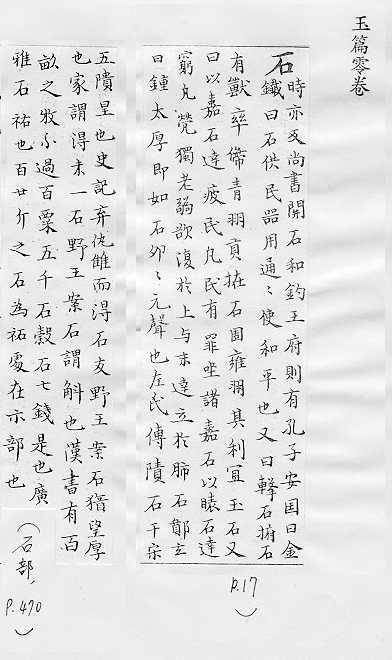 玉篇零卷
石 時亦反尚書開石和鈞王府則有孔子安国曰金
鐵曰石供民器用通〻使和平也又曰擊石拊石
有獸率儛青州貢恠石
曰以嘉石達疲民凡民有罪坐諸嘉石以
石達
窮凡煢獨老
欲復於上与未達立於肺石鄭玄
曰鍾太厚即如石
〻元聲也左氏傳隕石于宋
五隕星也史記
而得石友野王案石猶堅厚
也家謂得未一石野王案石謂斛也漢書有百
畝之收不過百粟五千石穀石七錢是也廣
雅石祏也百廿斤之石為祏處在示部也
(石部,
P.470
)
P.17
)